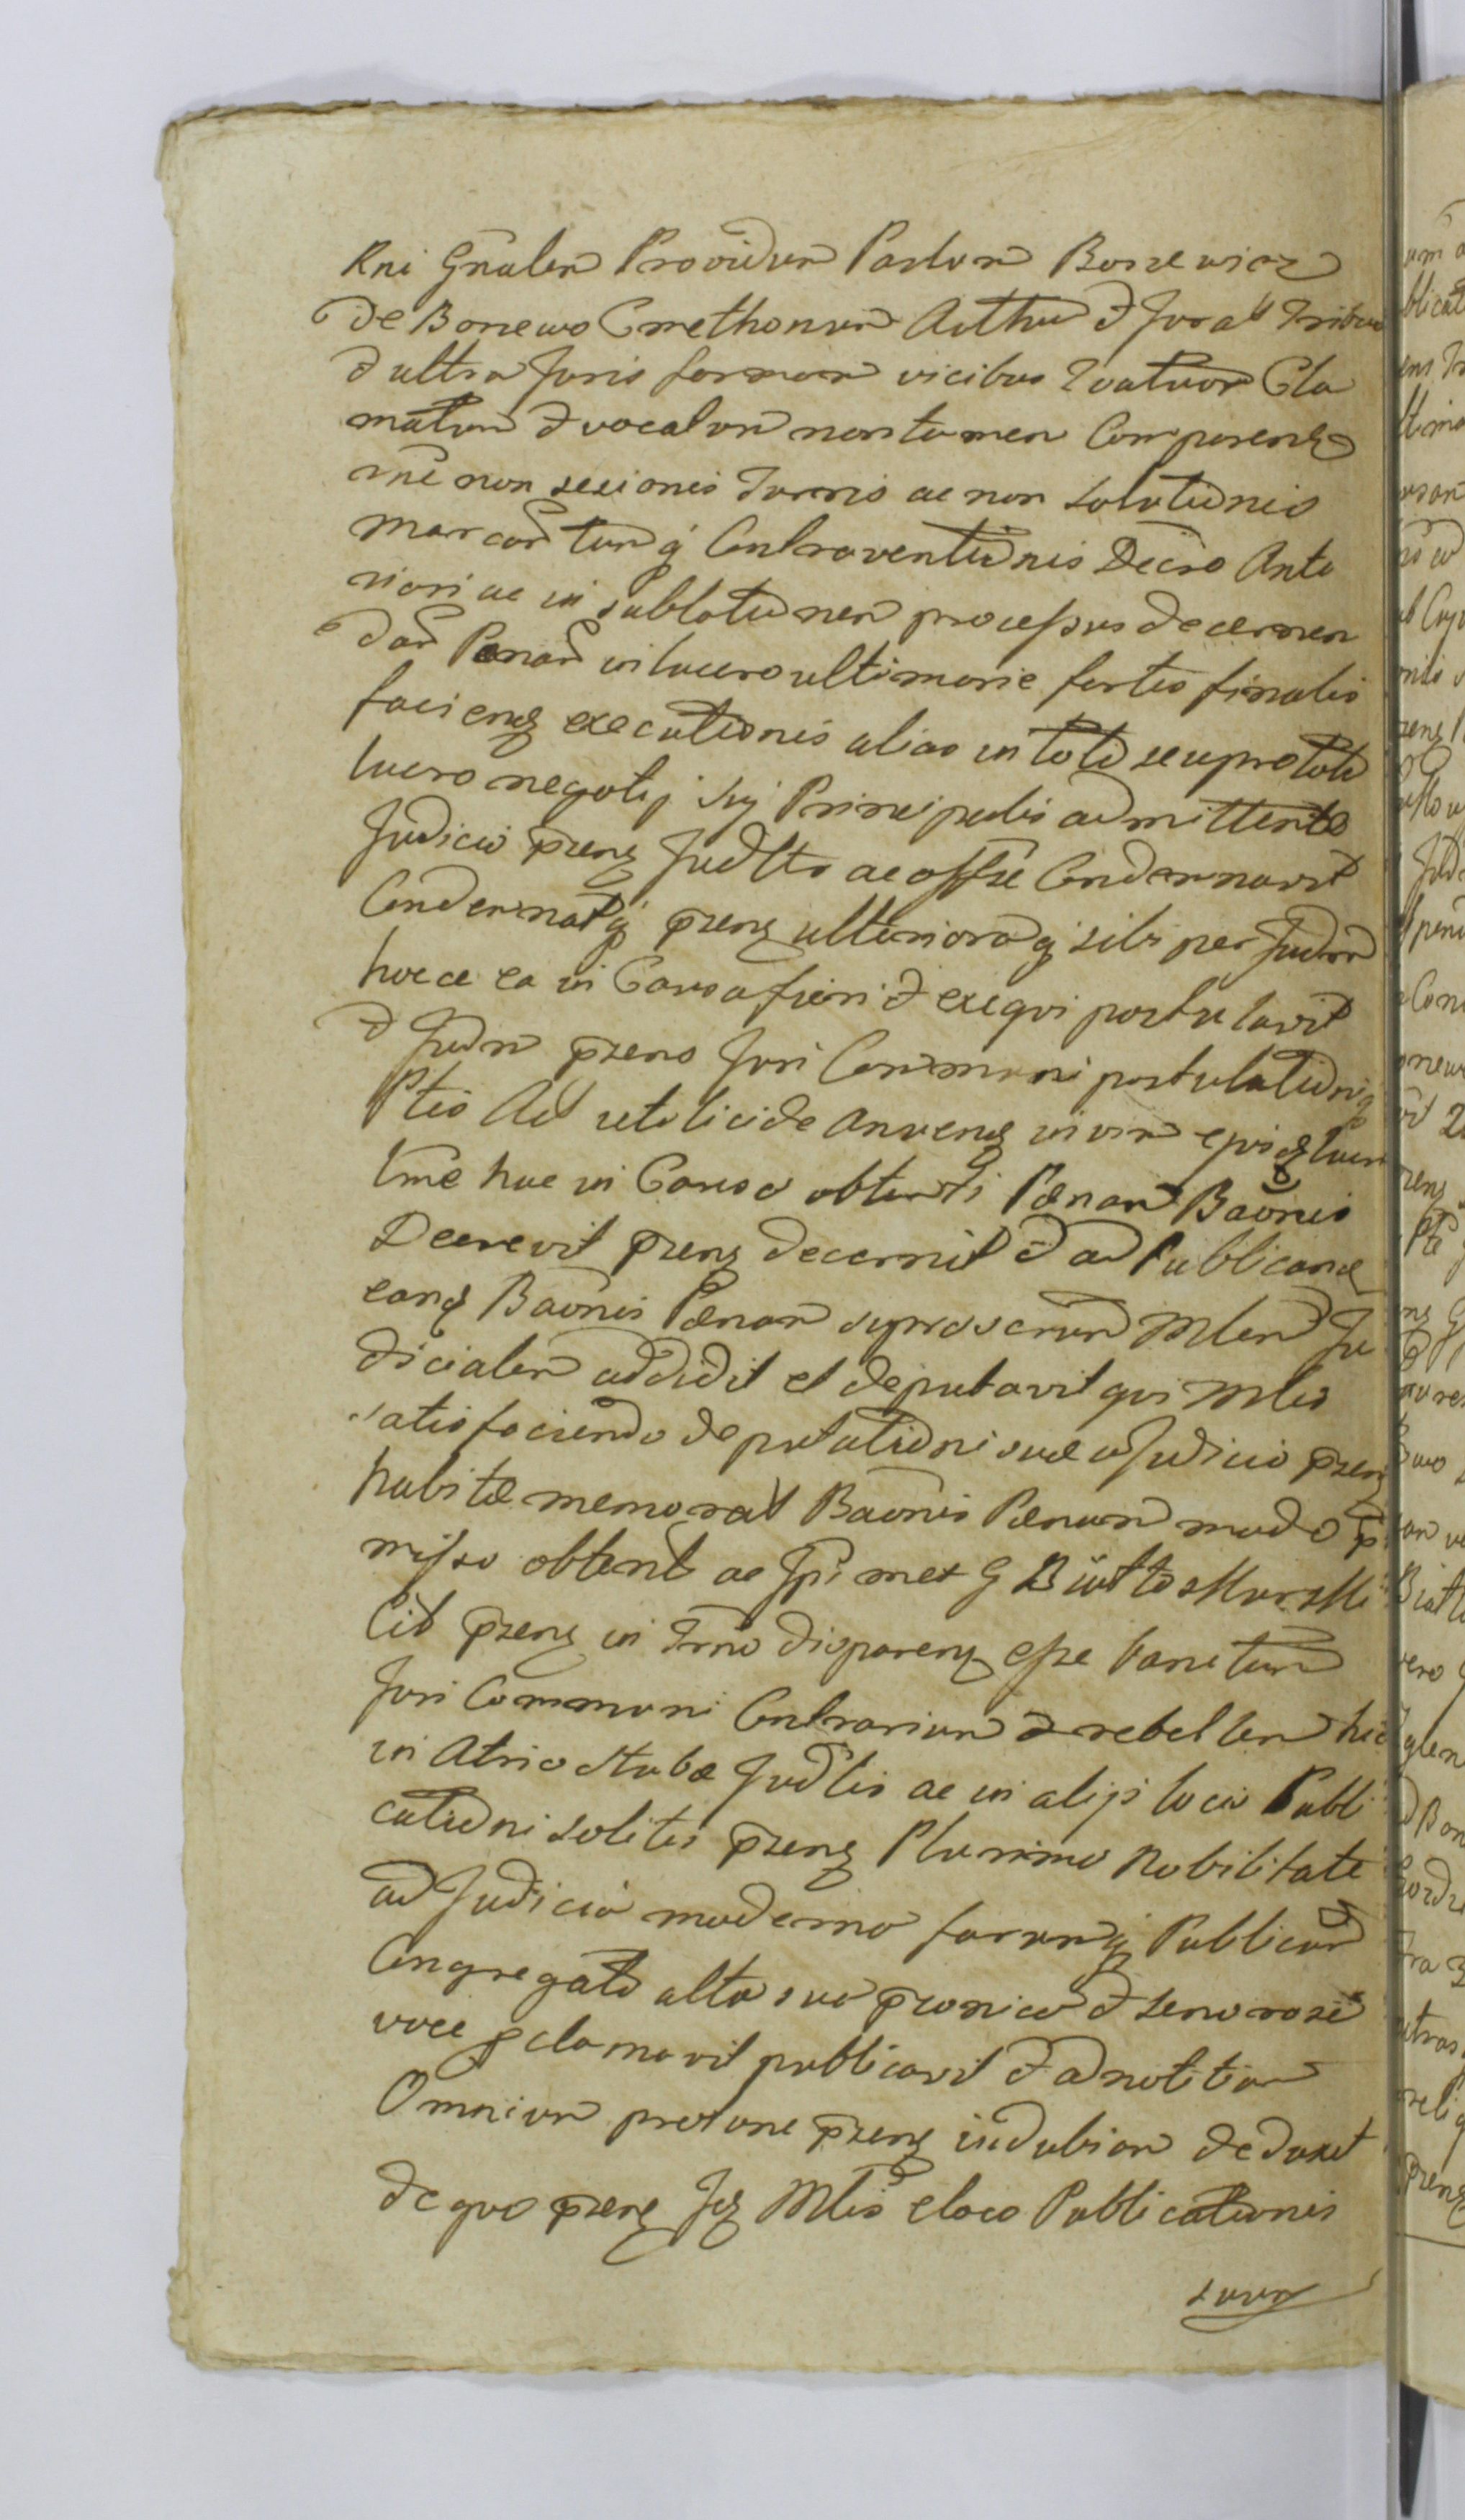 Rni Gnalem Providum Paulum Bonewicz
de Bonewo Cmethonum Acthu et Jurat Tribus
et ultra Juris formam vicibus Quatuor Cla
matum et vocatum non tamen Comparentt
rne non sesionis Turris ac non solutionis
marcar tum q Contraventionis Decro Ante
riori ac in sublationem processus decernen
dar Penar in lucro ultimarie fortis finalis
facienz executionis alias in toto seu pro toto
lucro negotij sui Principalis admittente
Judicio prnz Judltr ac offse Condemnavit
Condemnatq prnz ulterioraq sibi per Judm
hocce ea in Causa fieri et exequi postulavit
et Judm prns Juri Communi postulationiq
Ptis Act utilicide Annenz in vim ejusdz lucri
tme hac in Causa obtenti Pœnam Baonis
Decrevit prnz decernit et ad Publicand
eandz Baonis Pœnam suprascrum Mlem Ju
dicialem addidit et deputavit qui Mlis
satisfaciendo deputationi suæ a Judicio prnz
habitæ memorat Baonis Pœnam modo p
misso obtent ac Jpsmet G
Cit prnz in Trno disparenz esse banitum
Juri Communi Contrarium et rebellem hic
in Atrio Stubæ Judlis ac in alijs locis Publi
cationi solitis prnz Plurimo Nobilitate
ad Judicia moderna forumq Publicum
Congregato alta sua pronico et senorose
voce pclamavit publicavit et ad notitiam
Omnium protunc prnz indubiam deduxit
de quo prnz Jdz Mlis e loco Publicationis
suam